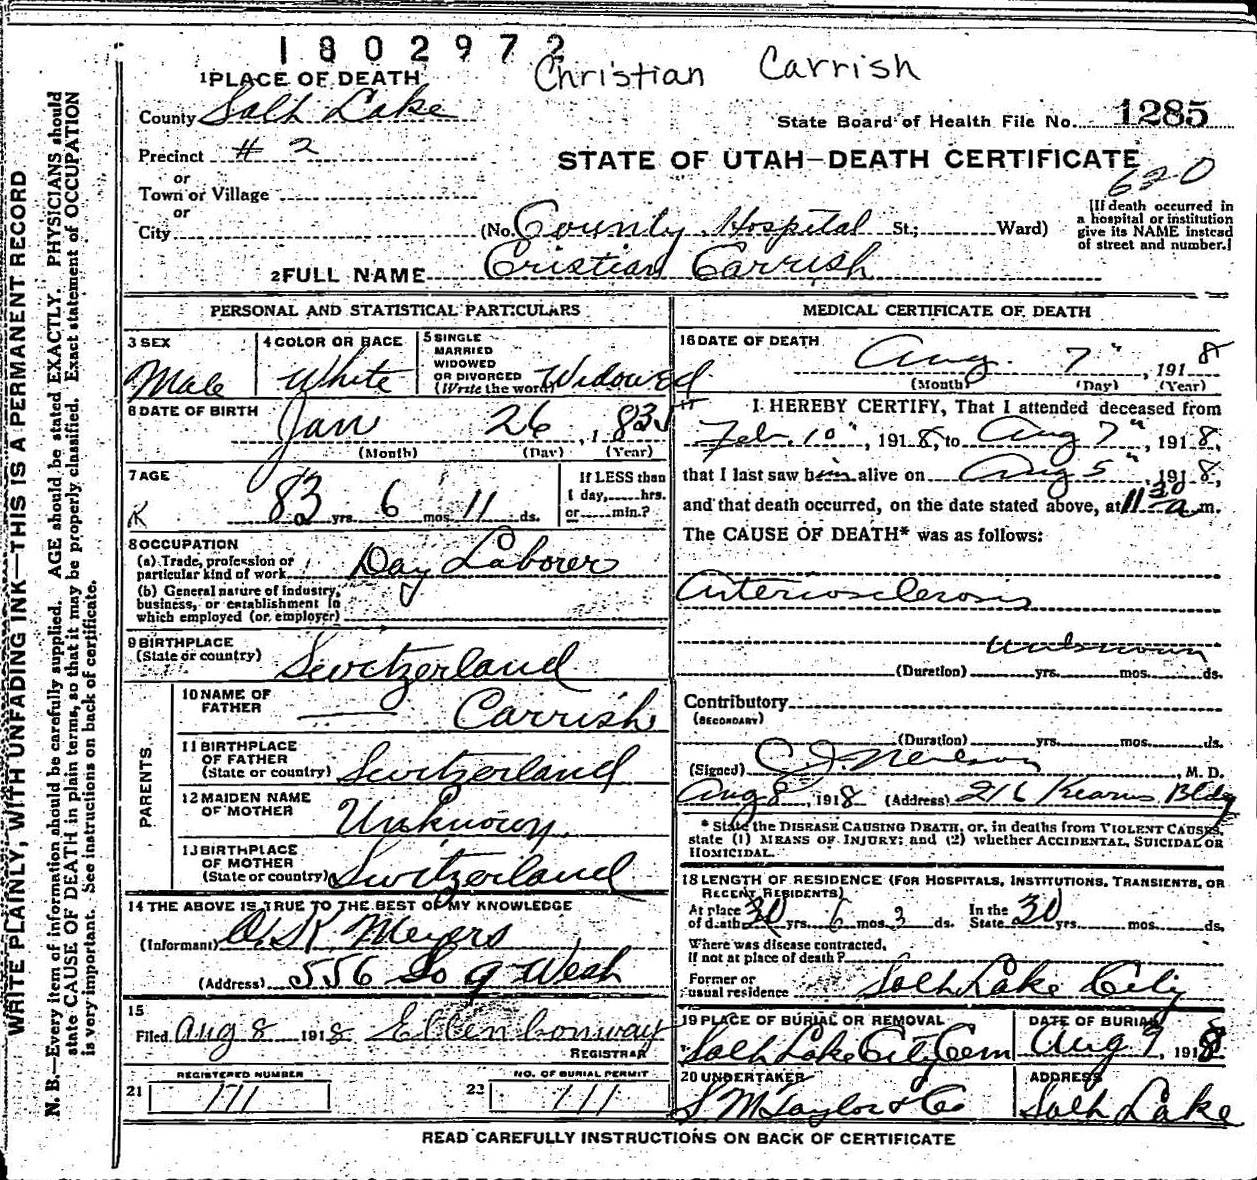 1802972
Christian Carrish
1 PLACE OF DEATH
County Salt Lake
State Board of Health File No. 1285
Precinct # 2
STATE OF UTAH—DEATH CERTIFICATE
620
or
Town or Village
or
City (No. County Hospital St.; Ward)
[If death occurred in
a hospital or institution
give its NAME instead
of street and number.]
2 FULL NAME Cristian Carrish
PERSONAL AND STATISTICAL PARTICULARS
3 SEX
Male
4 COLOR OR RACE
White
5 SINGLE
MARRIED
WIDOWED
OR DIVORCED
(Write the word) Widowed
6 DATE OF BIRTH
Jan 26, 1835
(Month) (Day) (Year)
7 AGE
K 83 yrs. 6 mos. 11 ds.
If LESS than
1 day, hrs.
or min.?
8 OCCUPATION
(a) Trade, profession or
particular kind of work Day Laborer
(b) General nature of industry,
business, or establishment in
which employed (or employer)
9 BIRTHPLACE
(State or country) Switzerland
PARENTS
10 NAME OF
FATHER — Carrish
11 BIRTHPLACE
OF FATHER
(State or country) Switzerland
12 MAIDEN NAME
OF MOTHER Unknown
13 BIRTHPLACE
OF MOTHER
(State or country) Switzerland
14 THE ABOVE IS TRUE TO THE BEST OF MY KNOWLEDGE
(Informant) O. K. Meyers
(Address) 556 So 9 West
15
Filed Aug 8 1918 Ellen Conway
REGISTRAR
REGISTERED NUMBER
21 111
NO. OF BURIAL PERMIT
22 111
MEDICAL CERTIFICATE OF DEATH
16 DATE OF DEATH
Aug. 7", 1918
(Month) (Day) (Year)
17 I HEREBY CERTIFY, That I attended deceased from
Feb. 10", 1918, to Aug 7", 1918,
that I last saw him alive on Aug 5", 1918,
and that death occurred, on the date stated above, at 11 30 a m.
The CAUSE OF DEATH* was as follows:
Arteriosclerosis
unknown
(Duration) yrs. mos. ds.
Contributory
(SECONDARY)
(Duration) yrs. mos. ds.
(Signed) C. J. Neilson, M. D.
Aug 8, 1918 (Address) 216 Kearns Bldg
* State the DISEASE CAUSING DEATH, or, in deaths from VIOLENT CAUSES,
state (1) MEANS OF INJURY; and (2) whether ACCIDENTAL, SUICIDAL OR
HOMICIDAL.
18 LENGTH OF RESIDENCE (FOR HOSPITALS, INSTITUTIONS, TRANSIENTS, OR
RECENT RESIDENTS)
At place
of death 30 yrs. 6 mos. 3 ds.
In the
State 30 yrs. mos. ds.
Where was disease contracted,
if not at place of death?
Former or
usual residence Salt Lake City
19 PLACE OF BURIAL OR REMOVAL
Salt Lake City Cem
DATE OF BURIAL
Aug 9, 1918
20 UNDERTAKER
S M Taylor & Co
ADDRESS
Salt Lake
READ CAREFULLY INSTRUCTIONS ON BACK OF CERTIFICATE
WRITE PLAINLY, WITH UNFADING INK—THIS IS A PERMANENT RECORD
N. B.—Every item of information should be carefully supplied. AGE should be stated EXACTLY. PHYSICIANS should
state CAUSE OF DEATH in plain terms, so that it may be properly classified. Exact statement of OCCUPATION
is very important. See instructions on back of certificate.